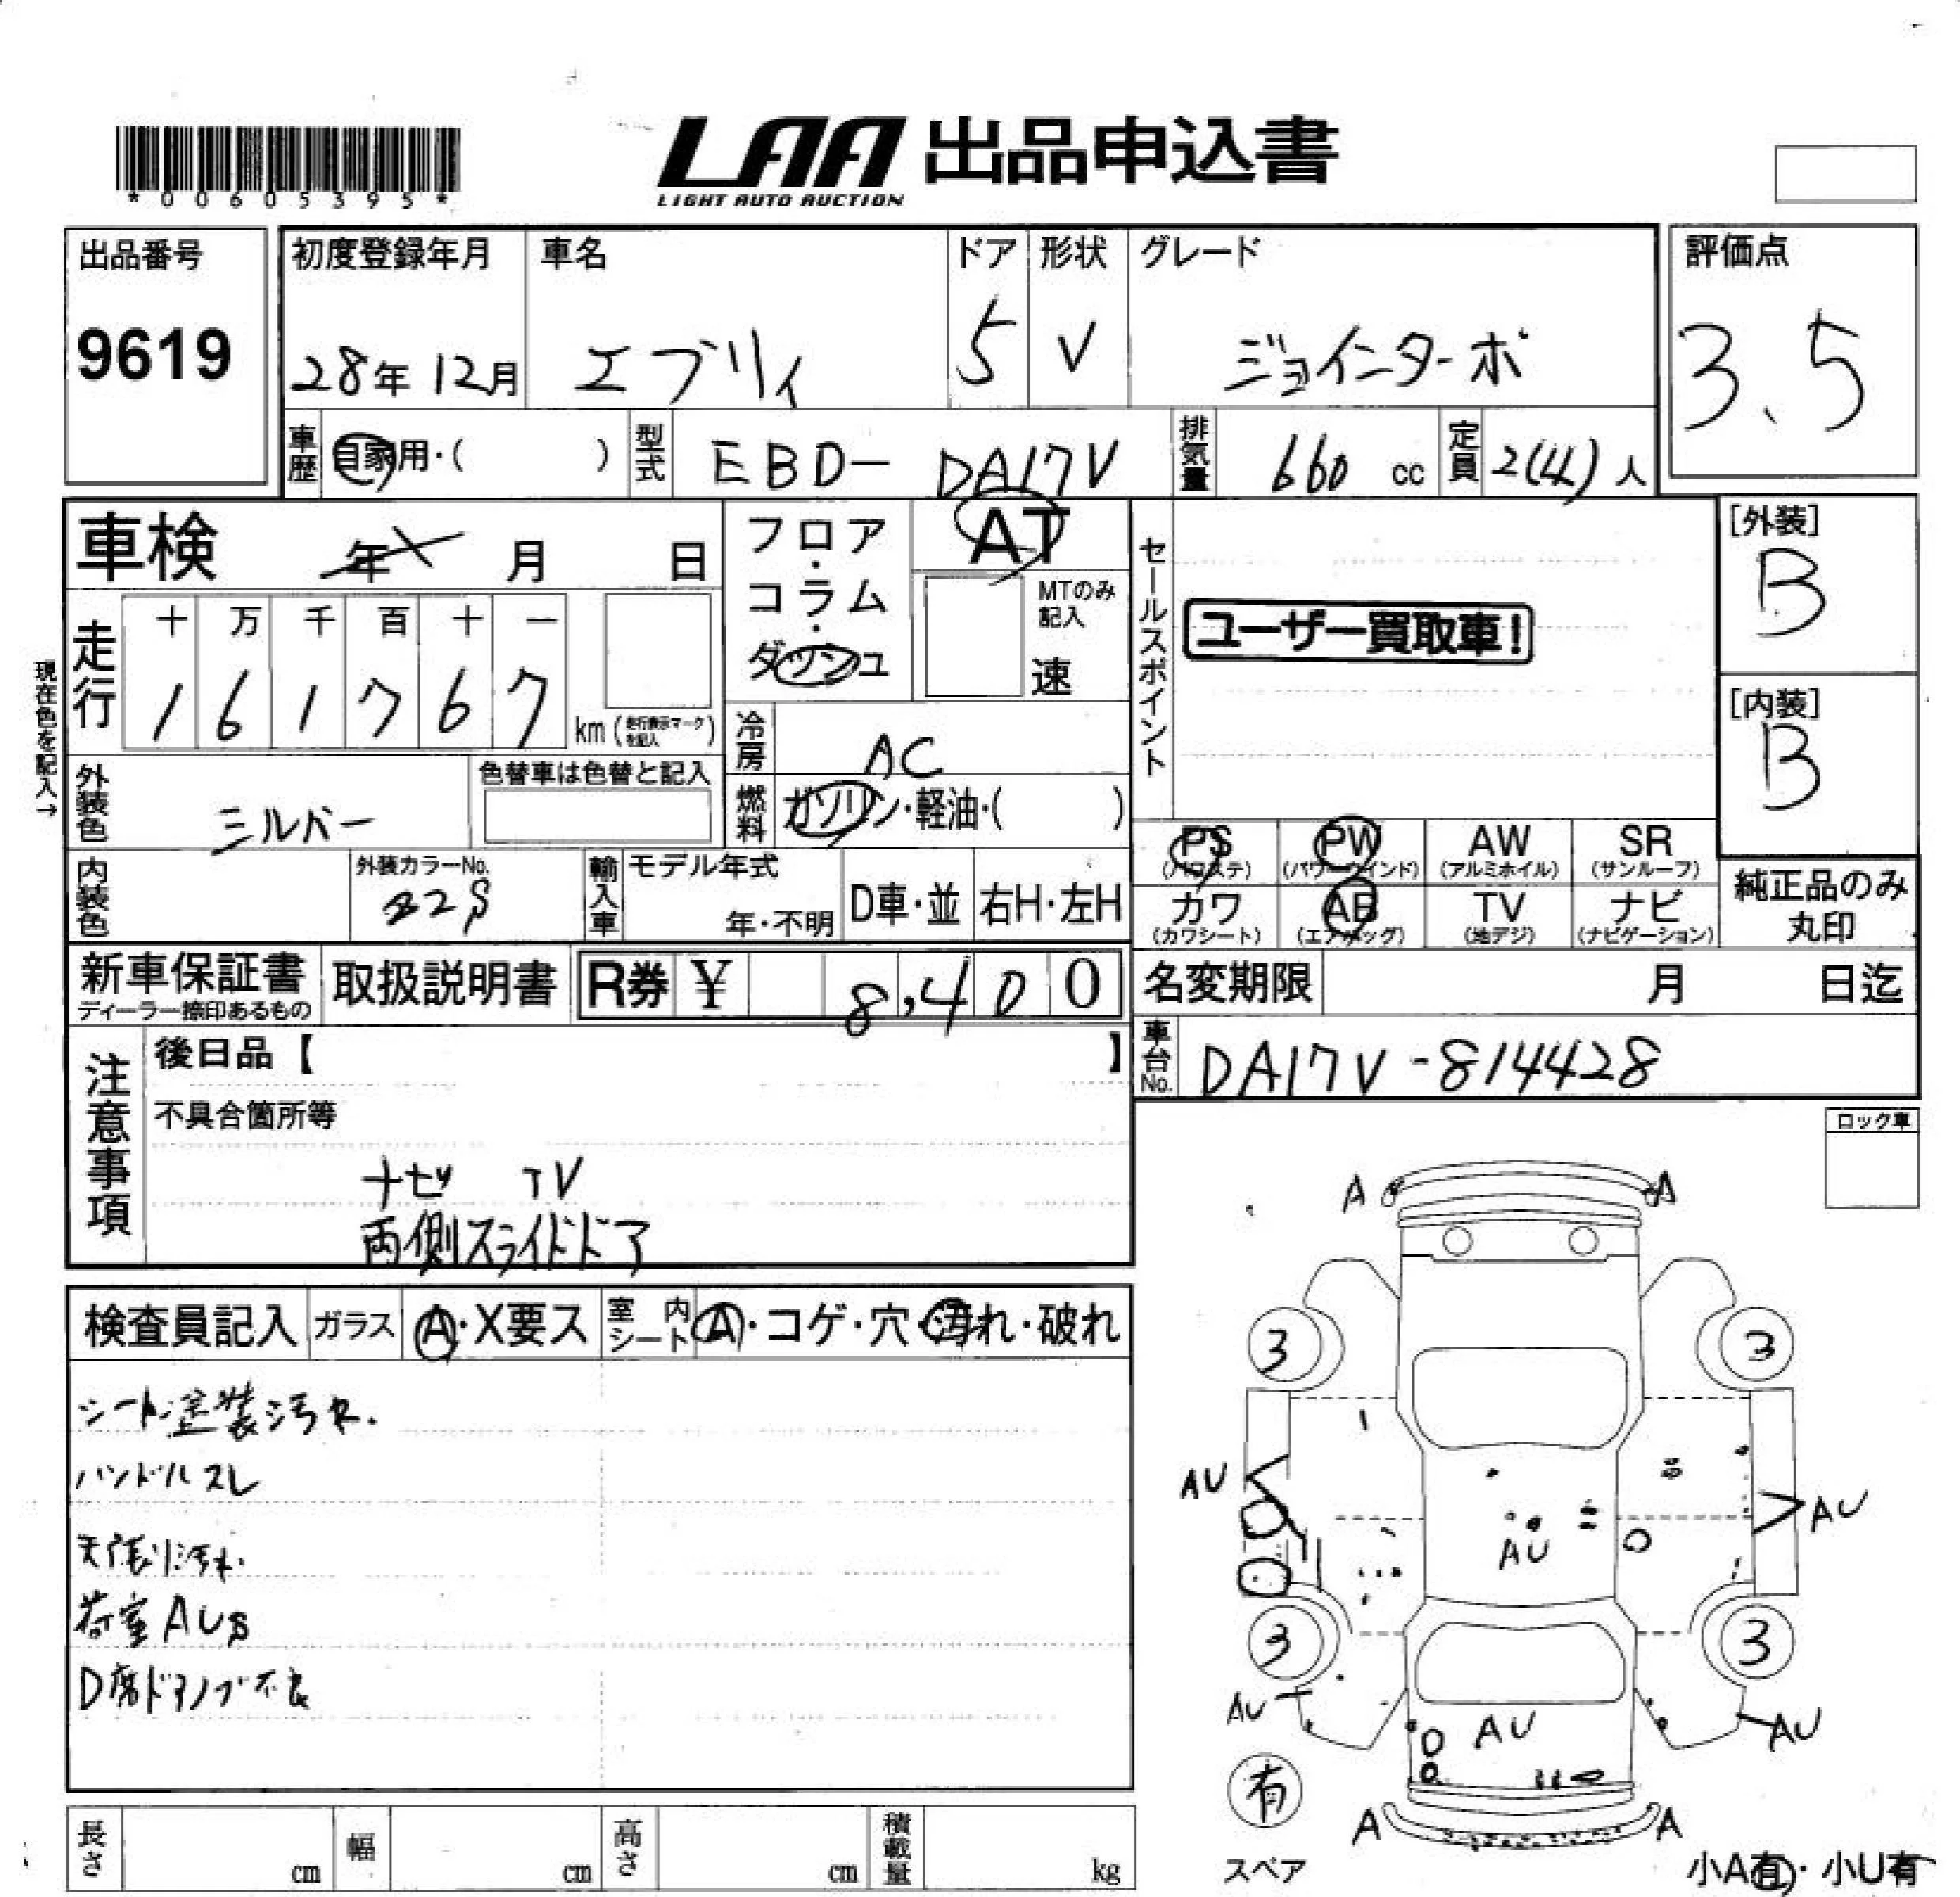 *00605395*
LAA 出品申込書
LIGHT AUTO AUCTION
出品番号
9619
初度登録年月
28年 12月
車名
エブリィ
ドア
5
形状
V
グレード
ジョインターボ
評価点
3.5
車歴
自家用・( )
型式
EBD- DA17V
排気量
660 cc
定員
2(4)人
車検 年 月 日
フロア・コラム・ダッシュ
AT
MTのみ記入
速
セールスポイント
ユーザー買取車!
[外装]
B
[内装]
B
現在色を記入→
走行
十 万 千 百 十 一
1 6 1 7 6 7
km (走行表示マークを記入)
冷房
AC
外装色
シルバー
色替車は色替と記入
燃料
ガソリン・軽油・( )
PS
(パワステ)
PW
(パワーウインド)
AW
(アルミホイル)
SR
(サンルーフ)
カワ
(カワシート)
AB
(エアバッグ)
TV
(地デジ)
ナビ
(ナビゲーション)
純正品のみ
丸印
内装色
外装カラーNo.
22S
輸入車
モデル年式
年・不明
D車・並
右H・左H
新車保証書
ディーラー捺印あるもの
取扱説明書
R券 ¥ 8,400
名変期限 月 日迄
注意事項
後日品【 】
車台No.
DA17V-814428
不具合箇所等
ナビ TV
両側スライドドア
ロック車
検査員記入
ガラス
A・X要ス
室内シート
A・コゲ・穴・汚れ・破れ
シート塗装汚れ.
ハンドルスレ
天張り汚れ.
荷室AUS
D席ドアノブ不良
A A
3 3
AU AU
AU
3 3
AU AU AU
有
スペア
A A
小A有・小U有
長さ cm
幅 cm
高さ cm
積載量 kg